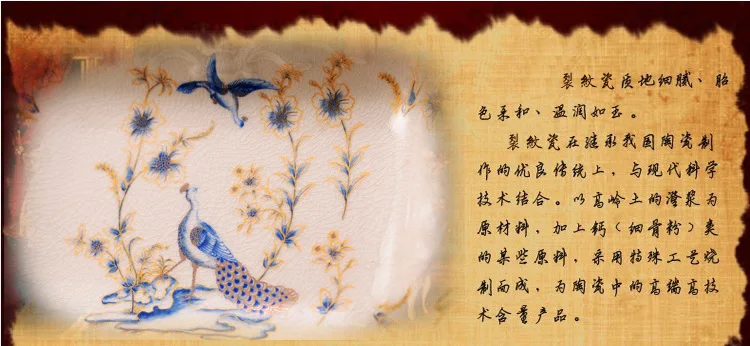 裂纹瓷质地细腻、胎
色柔和、温润如玉。
裂纹瓷在继承我国陶瓷制
作的优良传统上，与现代科学
技术结合。以高岭土的澄浆为
原材料，加上钙（细骨粉）类
的某些原料，采用特殊工艺烧
制而成，为陶瓷中的高端高技
术含量产品。